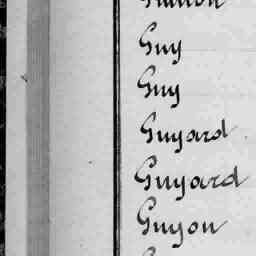 Guy
Guy
Guyard
Guyard
Guyon